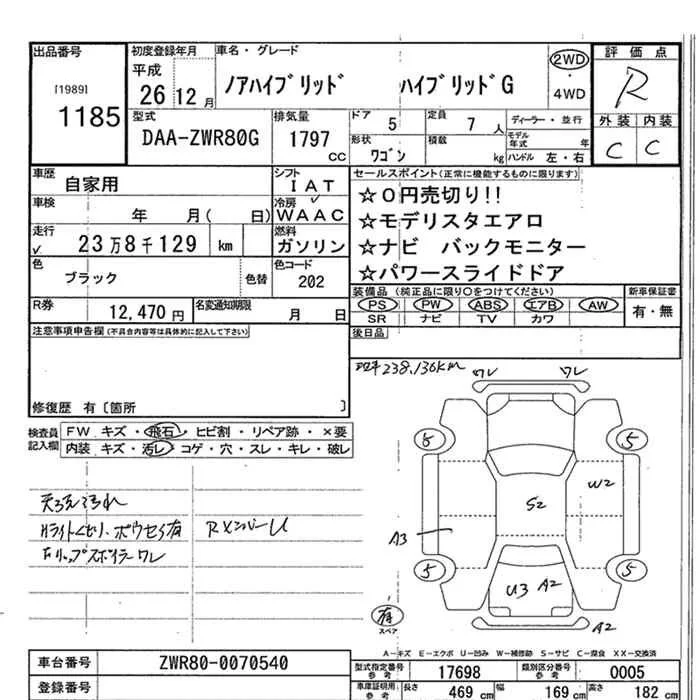 出品番号 初度登録年月 車名・グレード 評価点
[1989]
1185
平成
26 12 月
ノアハイブリッド ハイブリッドG
2WD
・
4WD
R
外装 内装
C C
型式 排気量 ドア 定員 ディーラー・並行
DAA-ZWR80G 1797 cc
5 7 人
モデル年式 年
形状 積載 kg ハンドル 左・右
ワゴン
車歴 自家用 シフト IAT
車検 年 月( 日) 冷房 WAAC
走行 23万8千129 km 燃料 ガソリン
色 ブラック 色替 色コード 202
R券 12,470 円 名変通知期限 月 日
セールスポイント(正常に機能するものに限ります)
☆0円売切り!!
☆モデリスタエアロ
☆ナビ バックモニター
☆パワースライドドア
装備品 (純正品に限り○をつけてください) 新車保証書
PS PW ABS エアB AW 有・無
SR ナビ TV カワ
後日品
注意事項申告欄(不具合内容等は具体的に記入して下さい)
修復歴 有〔箇所 〕
238,136km
ワレ ワレ
検査員記入欄
FW キズ・飛石・ヒビ割・リペア跡・×要
内装 キズ・汚レ・コゲ・穴・スレ・キレ・破レ
Hライトくもり、
Fリップスポイラーワレ
RXンバーU
6 5
W2
S2
A3
5 5
U3 A2
A2
有
スペア
A-キズ E-エクボ U-凹み W-補修跡 S-サビ C-腐食 XX-交換済
車台番号 ZWR80-0070540
登録番号
型式指定番号 参考 17698 類別区分番号 参考 0005
車庫証明用 参考 長さ 469 cm 幅 169 cm 高さ 182 cm